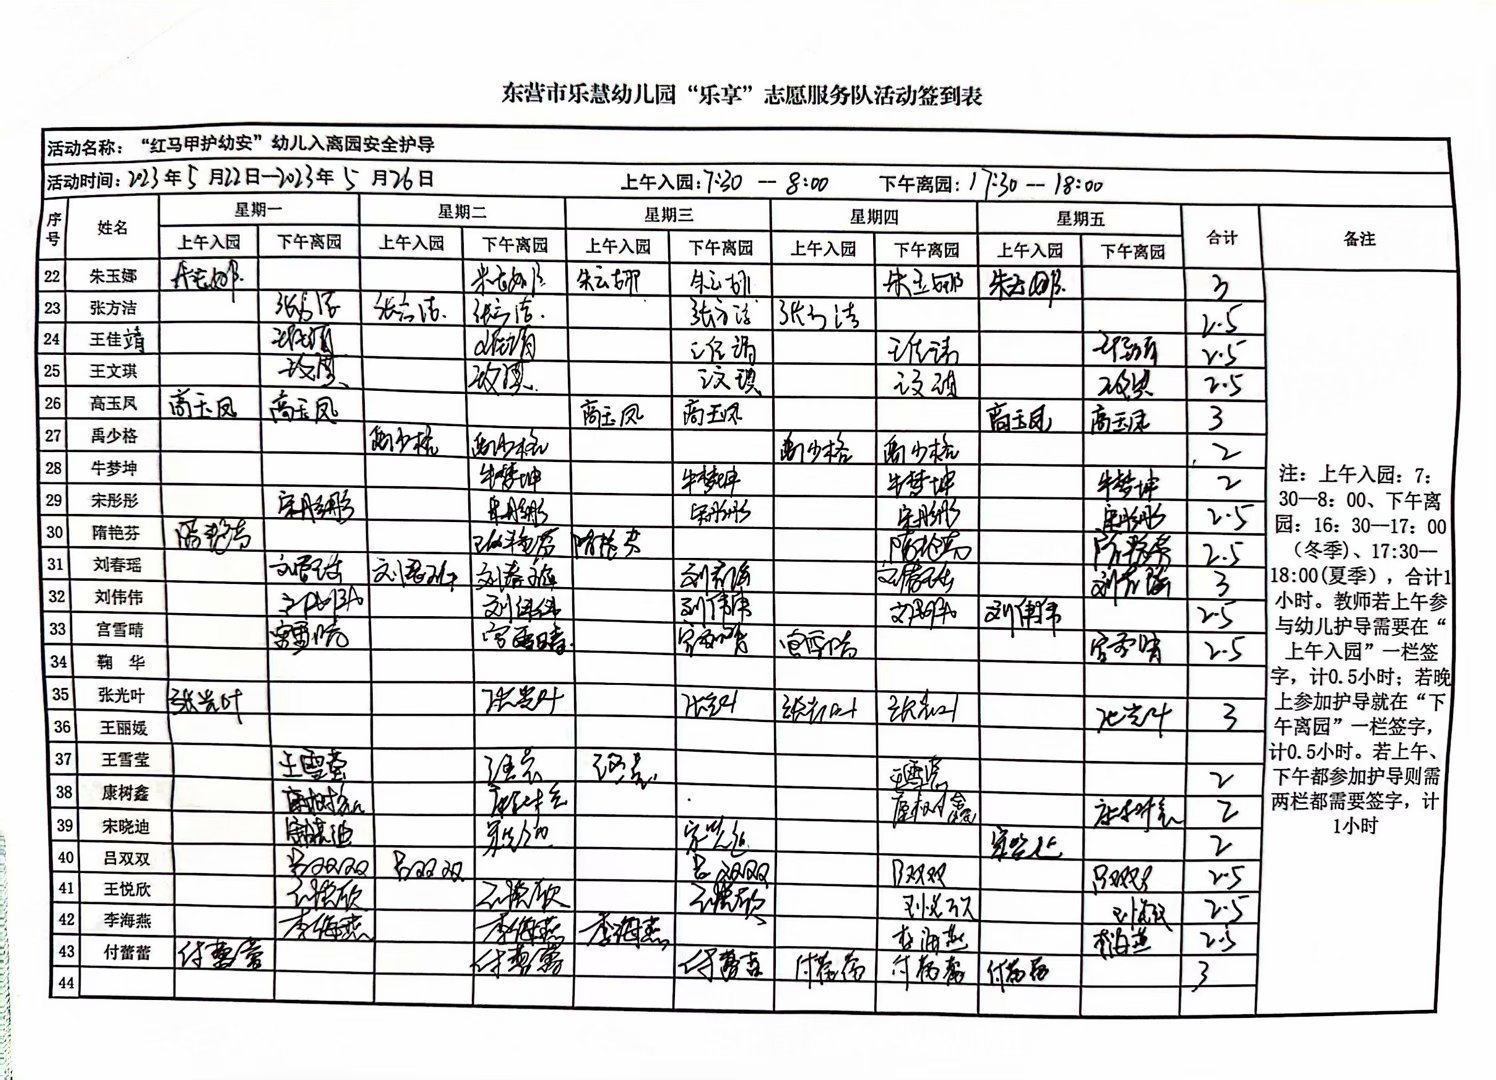 东营市乐慧幼儿园“乐享”志愿服务队活动签到表
活动名称：“红马甲护幼安”幼儿入离园安全护导
活动时间：2023年5月22日—2023年5月26日 上午入园：7:30--8:00 下午离园：17:30--18:00
序号 姓名 星期一 星期二 星期三 星期四 星期五 合计 备注
上午入园 下午离园 上午入园 下午离园 上午入园 下午离园 上午入园 下午离园 上午入园 下午离园
22 朱玉娜 朱玉娜 朱玉娜 朱玉娜 朱玉娜 朱玉娜 朱玉娜 3
23 张方洁 张方洁 张方洁 张方洁 张方洁 张方洁 2.5
24 王佳靖 王佳靖 王佳靖 王佳靖 王佳靖 王佳靖 2.5
25 王文琪 王文琪 王文琪 王文琪 王文琪 王文琪 2.5
26 高玉凤 高玉凤 高玉凤 高玉凤 高玉凤 高玉凤 高玉凤 3
27 禹少格 禹少格 禹少格 禹少格 禹少格 2
28 牛梦坤 牛梦坤 牛梦坤 牛梦坤 牛梦坤 2
29 宋彤彤 宋彤彤 宋彤彤 宋彤彤 宋彤彤 宋彤彤 2.5
30 隋艳芬 隋艳芬 隋艳芬 隋艳芬 隋艳芬 2.5
31 刘春瑶 刘春瑶 刘春瑶 刘春瑶 刘春瑶 刘春瑶 刘春瑶 3
32 刘伟伟 刘伟伟 刘伟伟 刘伟伟 刘伟伟 刘伟伟 2.5
33 宫雪晴 宫雪晴 宫雪晴 宫雪晴 宫雪晴 宫雪晴 2.5
34 鞠 华
35 张光叶 张光叶 张光叶 张光叶 张光叶 张光叶 张光叶 3
36 王丽媛
37 王雪莹 王雪莹 王雪莹 王雪莹 王雪莹 2
38 康树鑫 康树鑫 康树鑫 康树鑫 康树鑫 2
39 宋晓迪 宋晓迪 宋晓迪 宋晓迪 宋晓迪 2
40 吕双双 吕双双 吕双双 吕双双 吕双双 吕双双 2.5
41 王悦欣 王悦欣 王悦欣 王悦欣 王悦欣 王悦欣 2.5
42 李海燕 李海燕 李海燕 李海燕 李海燕 李海燕 2.5
43 付蕾蕾 付蕾蕾 付蕾蕾 付蕾蕾 付蕾蕾 付蕾蕾 付蕾蕾 3
44
注：上午入园：7：
30—8：00、下午离
园：16：30—17：00
（冬季）、17:30—
18:00(夏季），合计1
小时。教师若上午参
与幼儿护导需要在“
上午入园”一栏签
字，计0.5小时；若晚
上参加护导就在“下
午离园”一栏签字，
计0.5小时。若上午、
下午都参加护导则需
两栏都需要签字，计
1小时